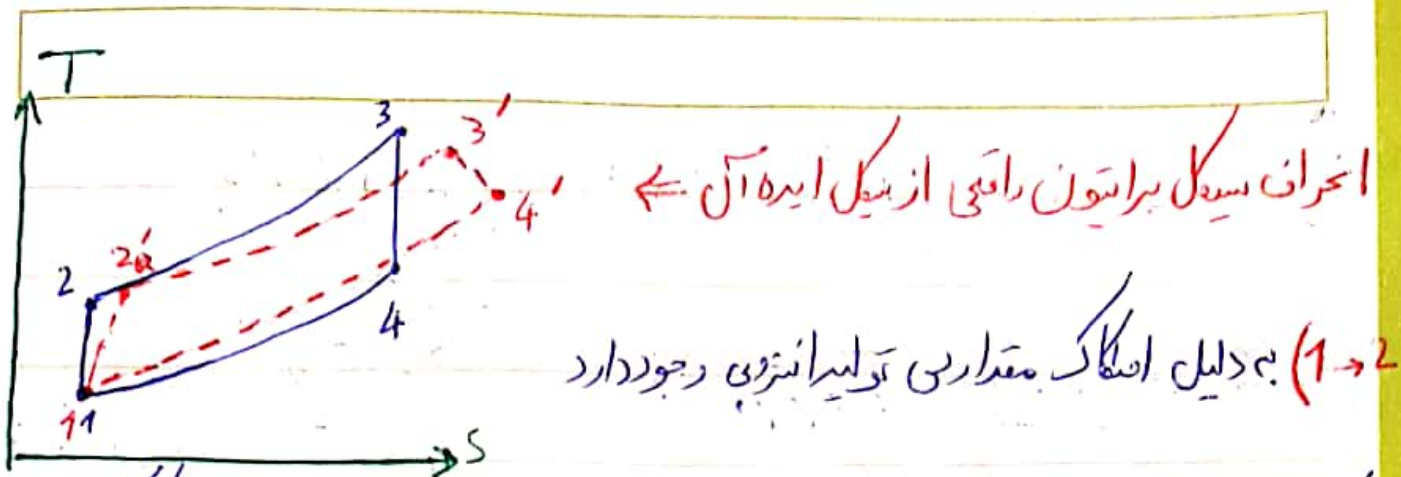 T
3
3′
انحراف سیکل برایتون واقعی از سیکل ایده آل ⇐
4′
2′
2
4
1→2) به دلیل اصطکاک مقداری تولید انتروپی وجود دارد
1 1
S